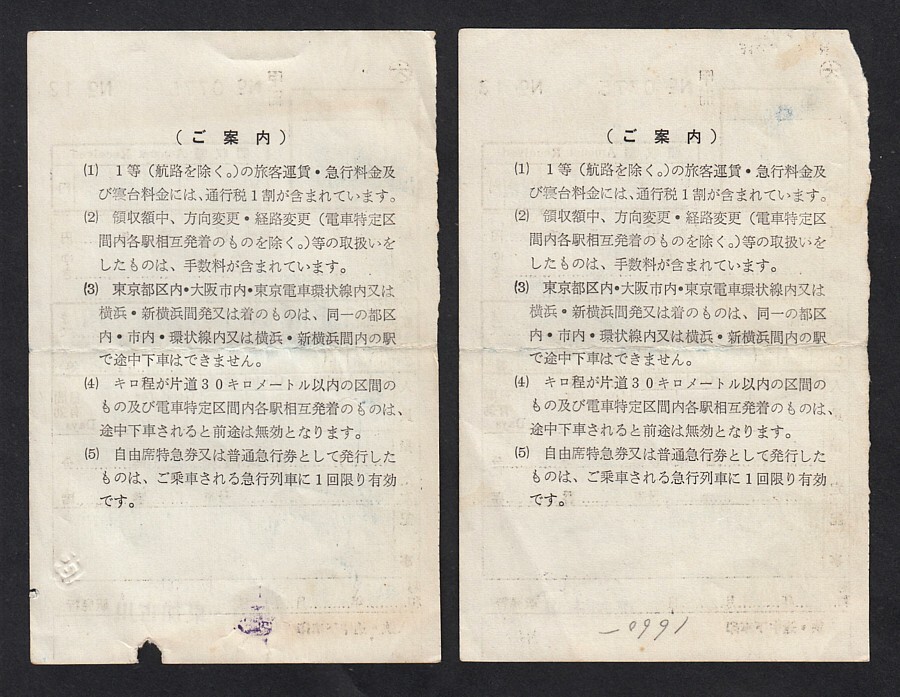 （ご案内）
(1) 1等（航路を除く。）の旅客運賃・急行料金及
び寝台料金には、通行税1割が含まれています。
(2) 領収額中、方向変更・経路変更（電車特定区
間内各駅相互発着のものを除く。）等の取扱いを
したものは、手数料が含まれています。
(3) 東京都区内・大阪市内・東京電車環状線内又は
横浜・新横浜間発又は着のものは、同一の都区
内・市内・環状線内又は横浜・新横浜間内の駅
で途中下車はできません。
(4) キロ程が片道30キロメートル以内の区間の
もの及び電車特定区間内各駅相互発着のものは、
途中下車されると前途は無効となります。
(5) 自由席特急券又は普通急行券として発行した
ものは、ご乗車される急行列車に1回限り有効
です。
（ご案内）
(1) 1等（航路を除く。）の旅客運賃・急行料金及
び寝台料金には、通行税1割が含まれています。
(2) 領収額中、方向変更・経路変更（電車特定区
間内各駅相互発着のものを除く。）等の取扱いを
したものは、手数料が含まれています。
(3) 東京都区内・大阪市内・東京電車環状線内又は
横浜・新横浜間発又は着のものは、同一の都区
内・市内・環状線内又は横浜・新横浜間内の駅
で途中下車はできません。
(4) キロ程が片道30キロメートル以内の区間の
もの及び電車特定区間内各駅相互発着のものは、
途中下車されると前途は無効となります。
(5) 自由席特急券又は普通急行券として発行した
ものは、ご乗車される急行列車に1回限り有効
です。
1660－